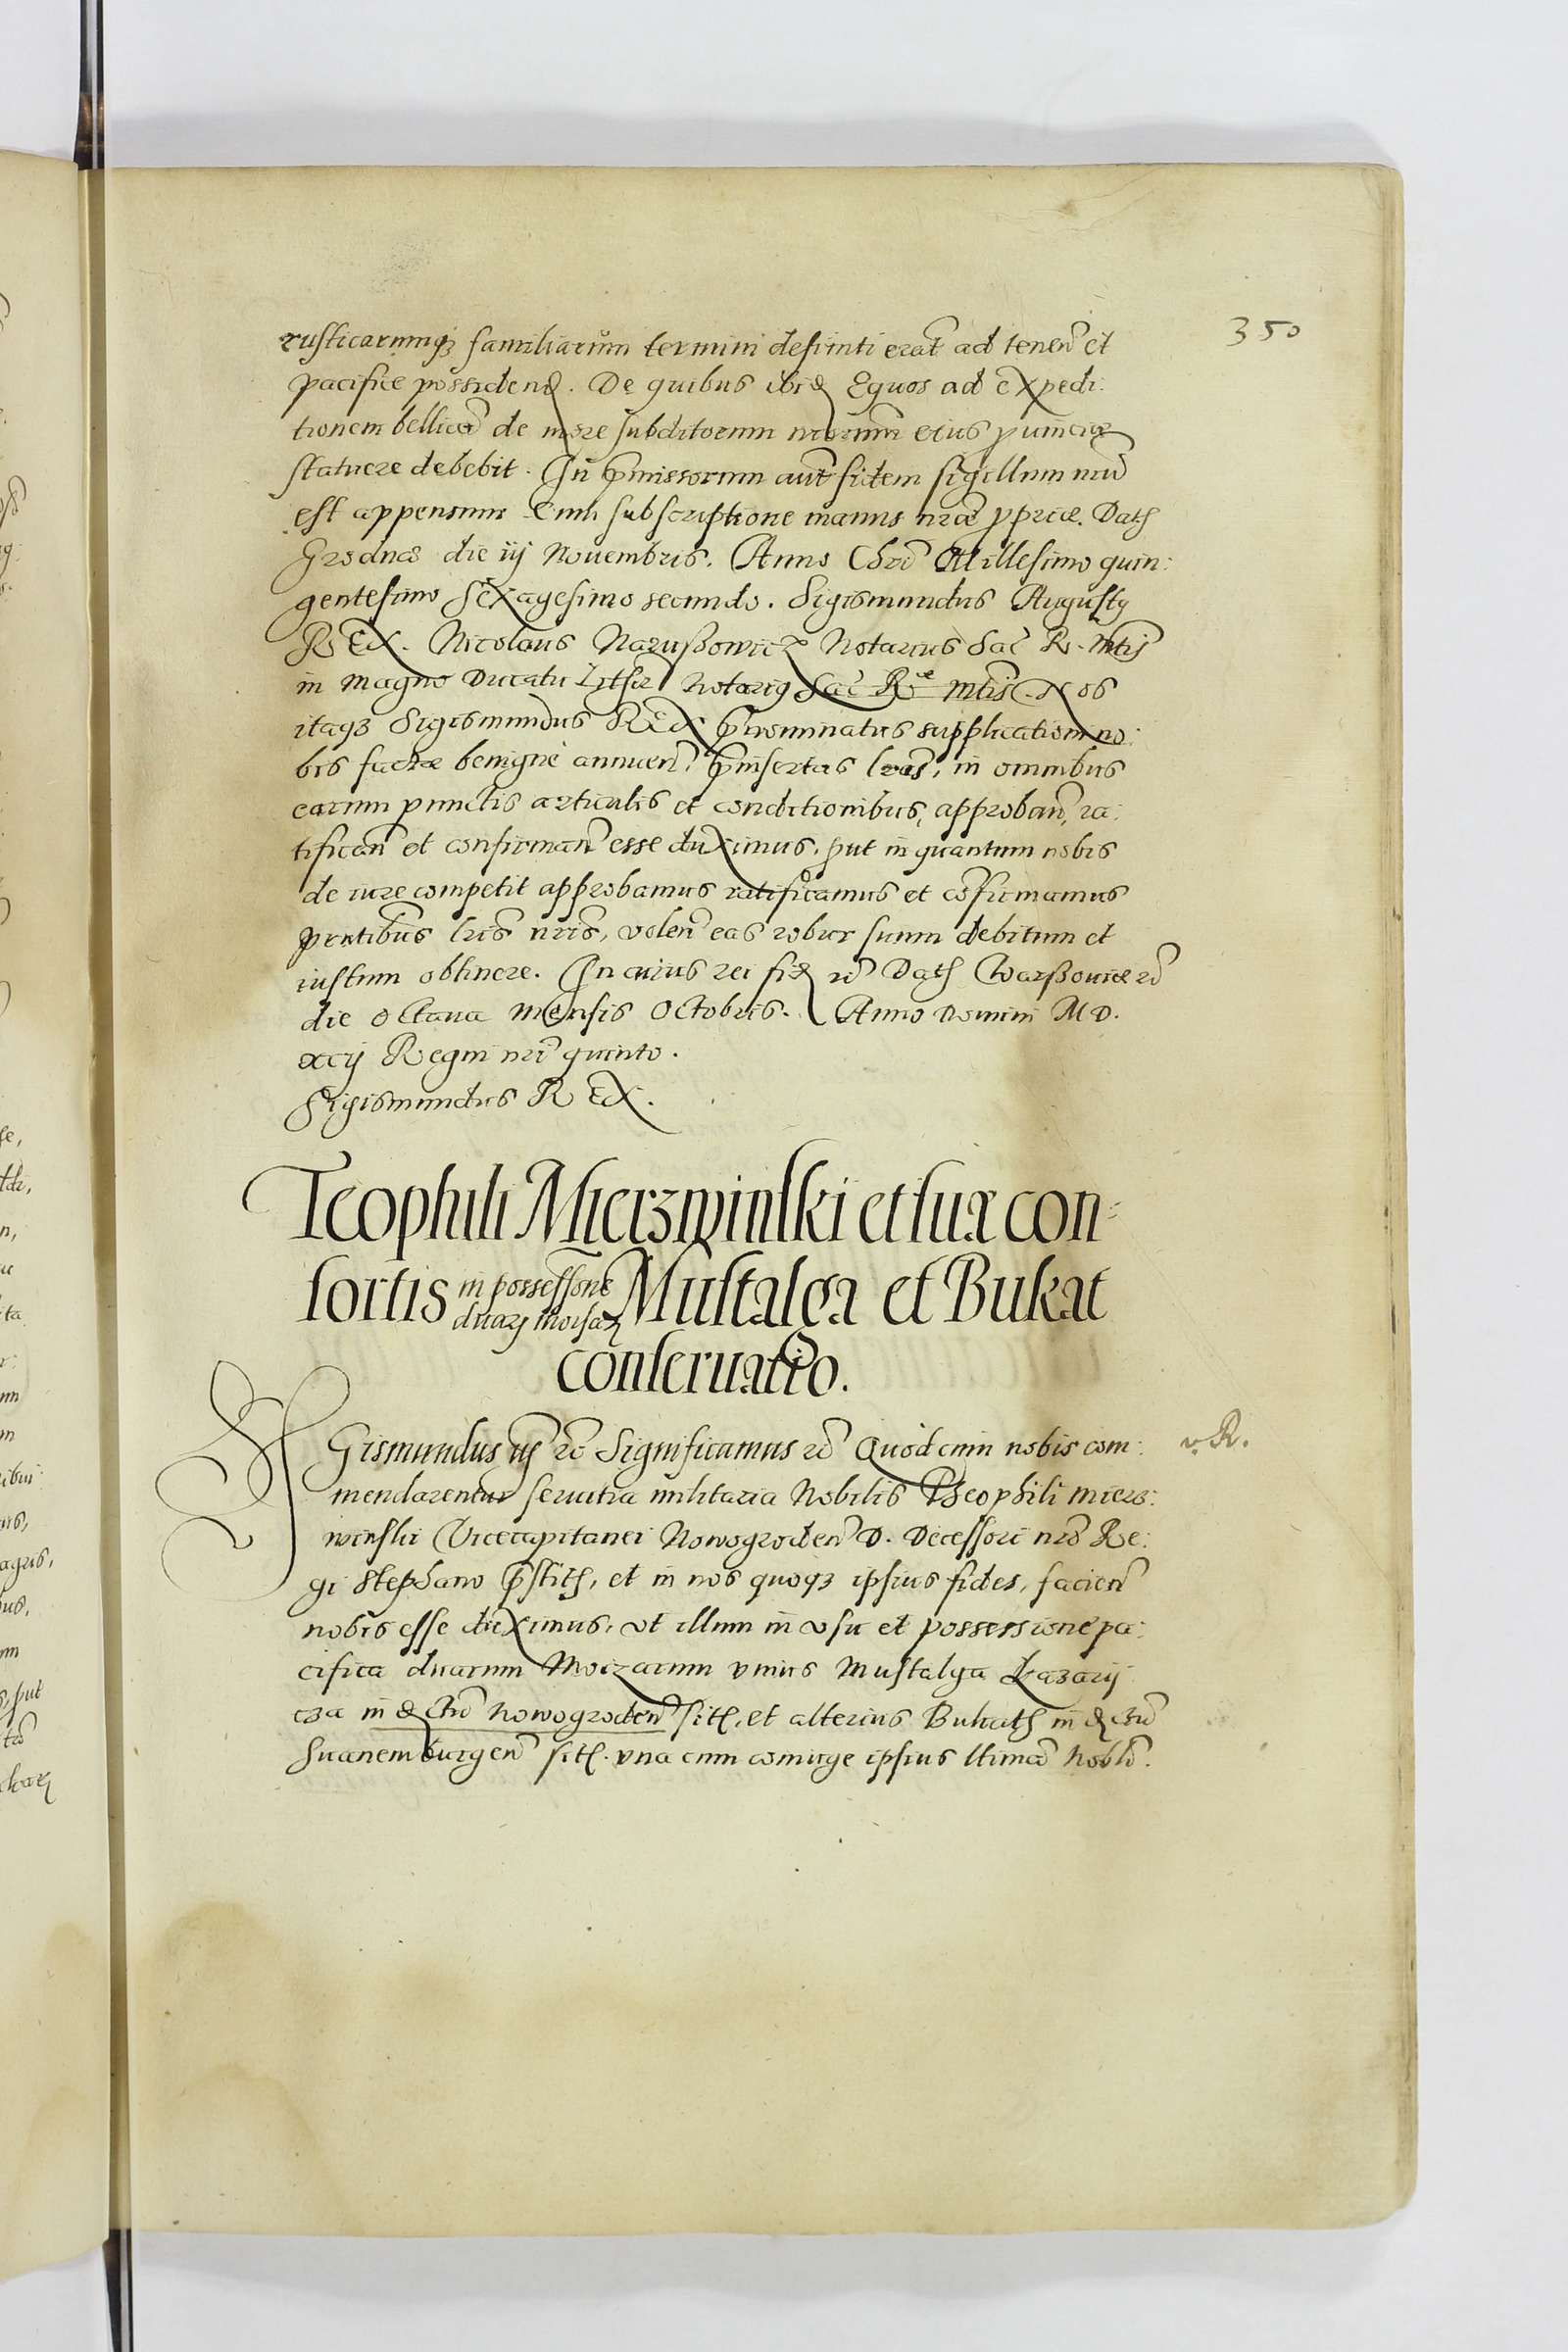 350
rusticarumq; familiarum termini definiti erāt ad tenen̄ et
pacifice possidend. De quibus ibid Equos ad expedi:
tionem bellicā de more subditorum nrorum eius puincię
statuere debebit. In pmissorum aut fidem sigillum nrū
est appensum Cum subscriptione manus nræ ppriæ. Dath
Grodnæ die iij Nouembris. Anno Chrī Millesimo quin:
gentesimo Sexagesimo secundo. Sigismundus Augusty
REX. Nicolaus Narußowicz Notarius Sac R. Mtis
in Magno Ducatu Lith Notarig Sac Rᵉ Mtis. Nos
itaq; Sigismundus REX pnominatus supplicationi no:
bis factæ benigne annuen, pinsertas lras, in omnibus
earum punctis articulis et conditionibus, approban, ra:
tifican et confirman esse duximus, put in quantum nobis
de iure competit approbamus ratificamus et cōfirmamus
pntibus lris nris, volen eas robur suum debitum et
iustum obtinere. In cuius rei fid rc Dath Warßouiæ rc
die octaua mensis Octobris. Anno Domini M D.
xcij Regni nri quinto.
Sigismundus REX.
Teophili Mierzwinski et suæ con:
sortis in possessione duarz moisarz Mustalga et Bukat
conseruatio.
SIGismundus iij rc Significamus rc Quod cum nobis com:
v. R.
mendarentur seruitia militaria Nobilis Theophili Mierz:
winski Vicecapitanei Nowogroden D. Decessori nro Re:
gi Stephano pstith, et in nos quoq; ipsius fides, facien
nobis esse duximus, vt illum in vsu et possessione pa:
cifica duarum Moizarum vnius Mustalga Lazary
cza in dctu Nowogroden sith, et alterius Bukath in dctu
Suanemburgen sith. vna cum coniuge ipsius ltima Nobli.